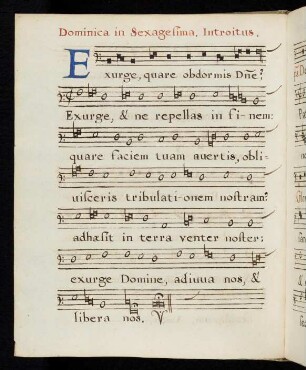 Dominica in Sexagesima. Introitus.
Exurge, quare obdormis Dn̄e?
Exurge, & ne repellas in finem:
quare faciem tuam avertis, obli-
visceris tribulationem nostram?
adhæsit in terra venter noster:
exurge Domine, adiuva nos, &
libera nos. V